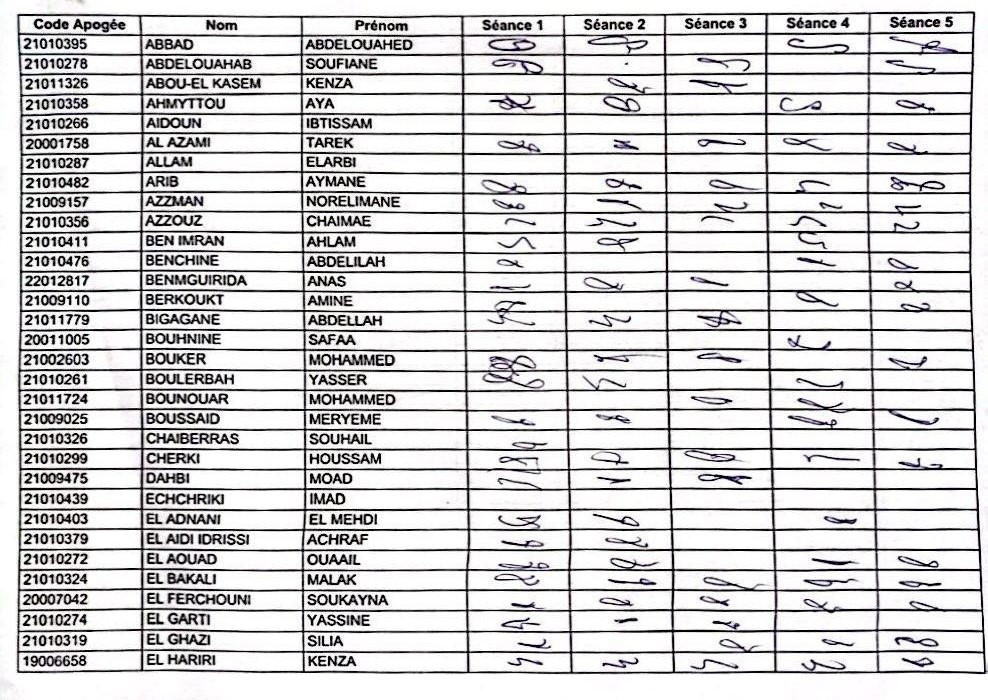 Code Apogée Nom Prénom Séance 1 Séance 2 Séance 3 Séance 4 Séance 5
21010395 ABBAD ABDELOUAHED
21010278 ABDELOUAHAB SOUFIANE
21011326 ABOU-EL KASEM KENZA
21010358 AHMYTTOU AYA
21010266 AIDOUN IBTISSAM
20001758 AL AZAMI TAREK
21010287 ALLAM ELARBI
21010482 ARIB AYMANE
21009157 AZZMAN NORELIMANE
21010356 AZZOUZ CHAIMAE
21010411 BEN IMRAN AHLAM
21010476 BENCHINE ABDELILAH
22012817 BENMGUIRIDA ANAS
21009110 BERKOUKT AMINE
21011779 BIGAGANE ABDELLAH
20011005 BOUHNINE SAFAA
21002603 BOUKER MOHAMMED
21010261 BOULERBAH YASSER
21011724 BOUNOUAR MOHAMMED
21009025 BOUSSAID MERYEME
21010326 CHAIBERRAS SOUHAIL
21010299 CHERKI HOUSSAM
21009475 DAHBI MOAD
21010439 ECHCHRIKI IMAD
21010403 EL ADNANI EL MEHDI
21010379 EL AIDI IDRISSI ACHRAF
21010272 EL AOUAD OUAAIL
21010324 EL BAKALI MALAK
20007042 EL FERCHOUNI SOUKAYNA
21010274 EL GARTI YASSINE
21010319 EL GHAZI SILIA
19006658 EL HARIRI KENZA